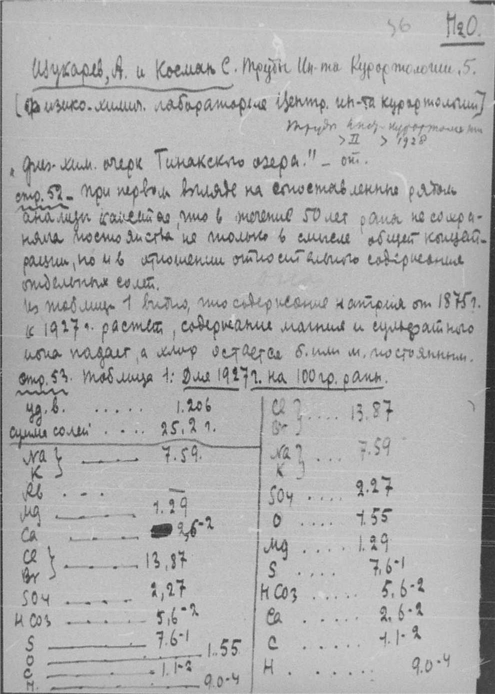 56
H₂O.
Щукарев, А. и Косман С. Труды Ин-та Курортологии. 5.
[Физико-химич. лаборатория Центр. ин-та курортологии]
Труды
> II > 1928
"Физ-хим. очерк Тинакского озера." – от.
стр. 52 – При первом взгляде на сопоставленные рядом
анализы что в течение 50 лет, рапа не сохра-
няла постоянства не только в смысле общей концент-
рации, но и в отношении относительного содержания
отдельных солей.
Из таблицы 1 видно, что содержание натрия от 1875 г.
к 1927 г. растет, содержание магния и сульфатного
иона падает, а хлор остается б. или м. постоянным.
стр. 53. Таблица 1: Для 1927 г. на 100 гр. рапы.
уд. в. ..... 1.206
Сумма солей ..... 25,2 г.
Na } K } —— 7.59.
Rb ... —
Mg —— 1.29
Ca —— 2,6-2
Cl } Br } —— 13,87
SO4 —— 2,27
HCO3 —— 5,6-2
S —— 7.6-1
O —— 1.55
C —— 1.1-2
H —— 9.0-4
Cl } Br } .... 13.87
Na } K } .... 7.59
SO4 .... 2.27
O .... 1.55
Mg .... 1.29
S .... 7,6-1
HCO3 ..... 5,6-2
Ca ..... 2,6-2
C ..... 1.1-2
H ..... 9.0-4